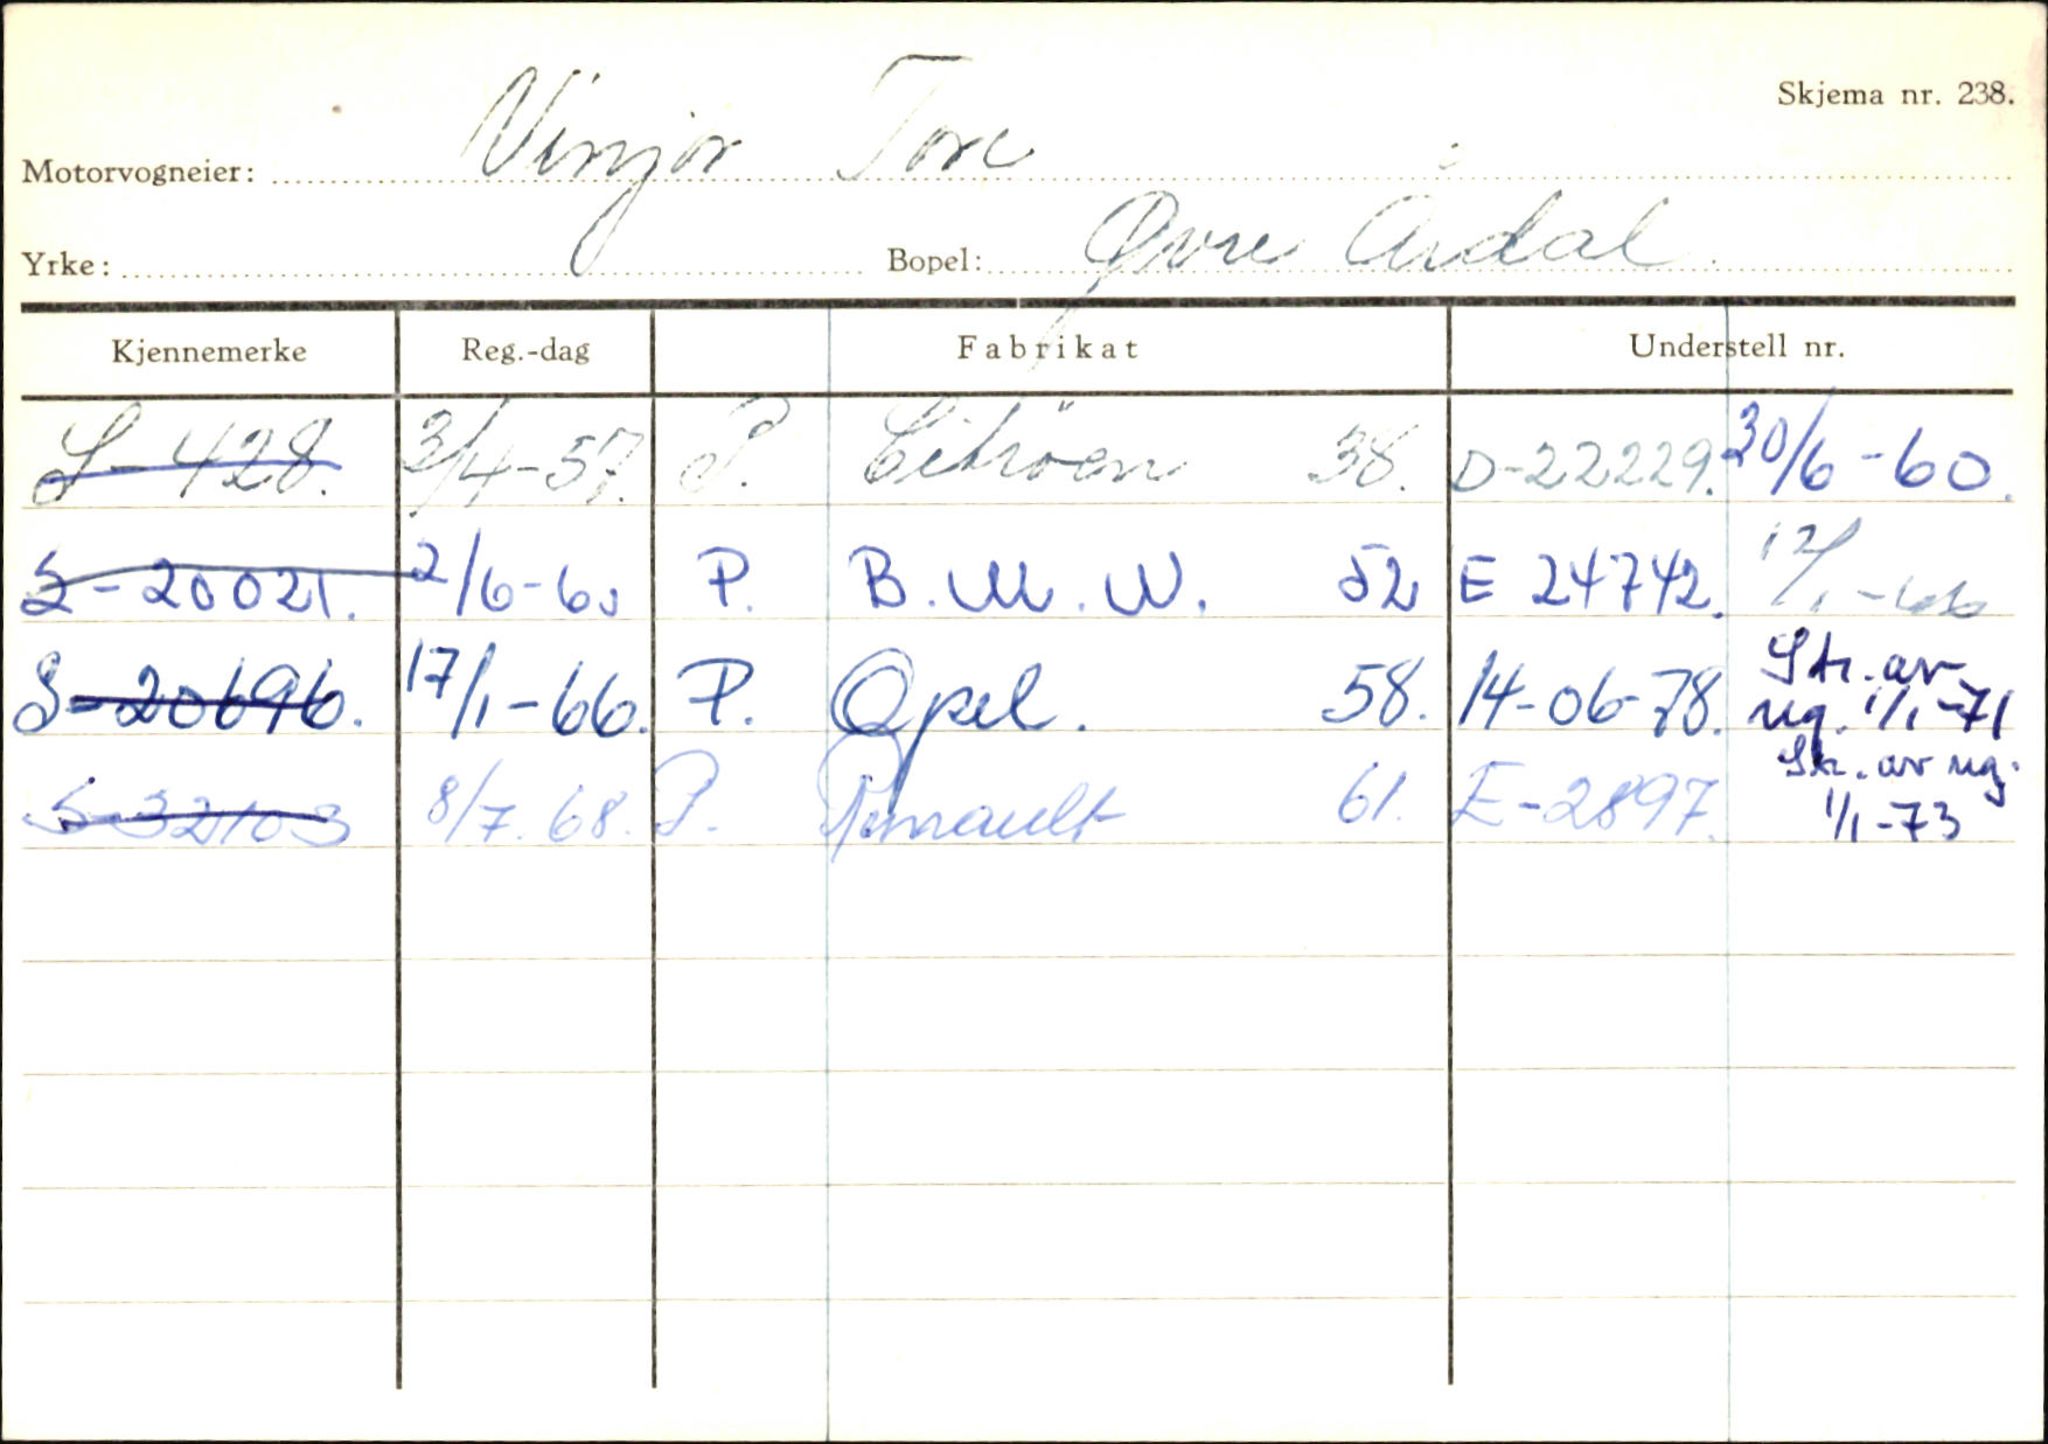 Skjema nr. 238.
Motorvogneier: Vinjor Tore
Yrke: Bopel: Øvre Årdal
Kjennemerke Reg.-dag Fabrikat Understell nr.
S-428. 3/4-57. P. Citröen 38. D-22229. 30/6-60.
S-20021. 2/6-60 P. B.M.W. 52 E 24742. 17/1-66
S-20696. 17/1-66. P. Opel. 58. 14-06-78. Str. av
reg. 1/1-71
S-32103 8/7.68. P. Renault 61. E-2897. Str. av reg.
1/1-73